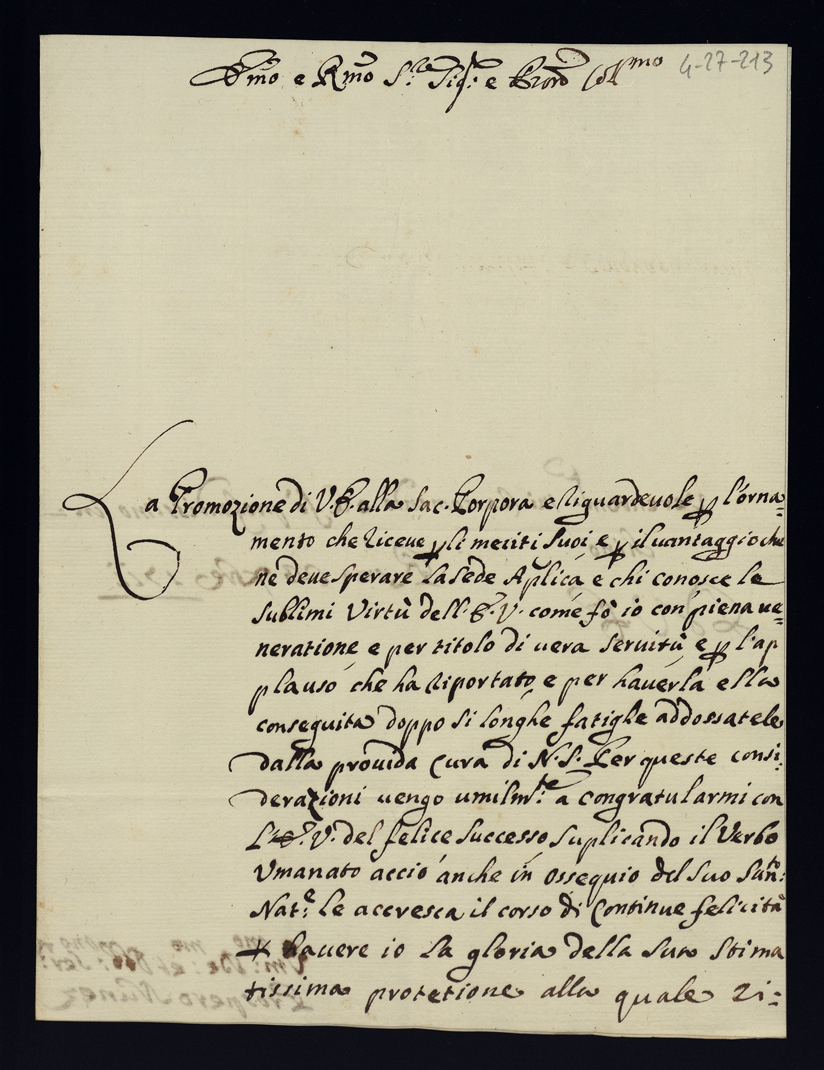 Emo e Rmo S.re Sig.r e Prone Col.mo 4-27-213
La Promozione di V.E. alla Sac. Porpora e riguardevole p l'orna=
mento che riceve p li meriti suoi e p il vantaggio che
ne deve sperare la Sede Aplica e chi conosce le
sublimi Virtù dell'E.V. come fò io con piena ve=
neratione e per titolo di vera servitù e p l'ap
plauso che ha riportato e per haverla ella
conseguita doppo si longhe fatighe addossatele
dalla provida cura di N.S. Per queste consi:
derazioni vengo umilm.te a congratularmi con
L'E.V. del felice successo, suplicando il Verbo
Umanato acciò anche in ossequio del suo San:to
Nat.e le accresca il corso di continue felicità
+ havere io la gloria della sua stima
tissima protetione alla quale ri=